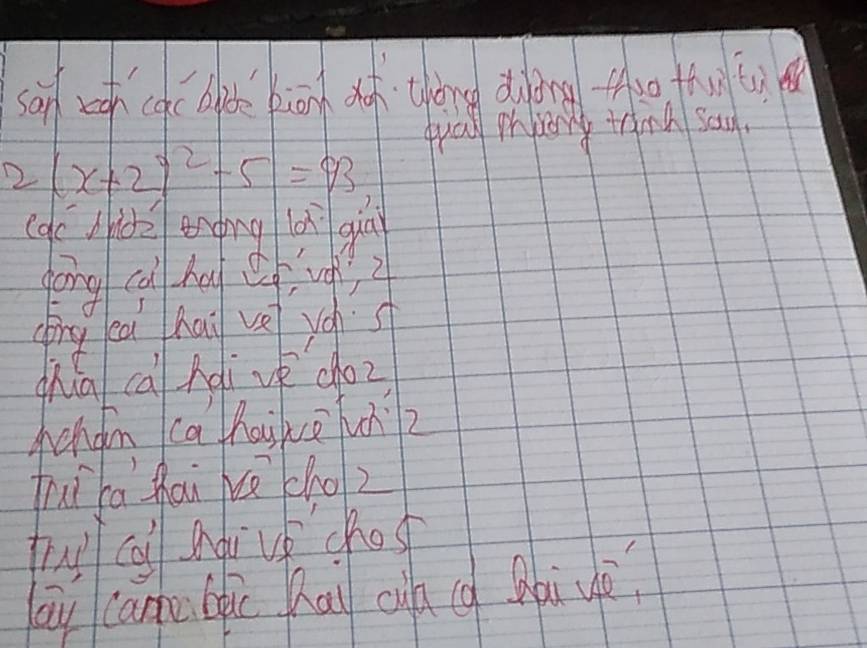 sắp xếp các bước biến đổi tương đương theo thứ tự
giải phương trình sau.
2(x+2)² - 5 = 93
các bước trong lời giải
cộng cả hai vế với 2
cộng cả hai vế với 5
chia cả hai vế cho 2
nhân cả hai vế với 2
Trừ cả hai vế cho 2
trừ cả hai vế cho 5
lấy căn bậc hai của cả hai vế.